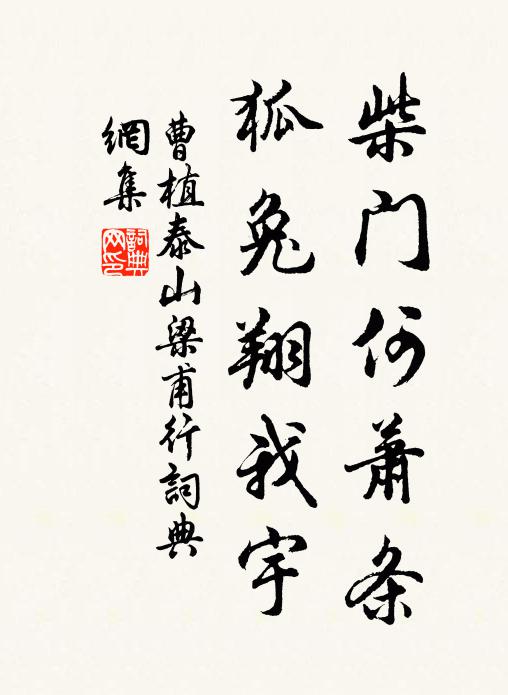 柴门何萧条
狐兔翔我宇
曹植泰山梁甫行詞典
網集
詞典
网印